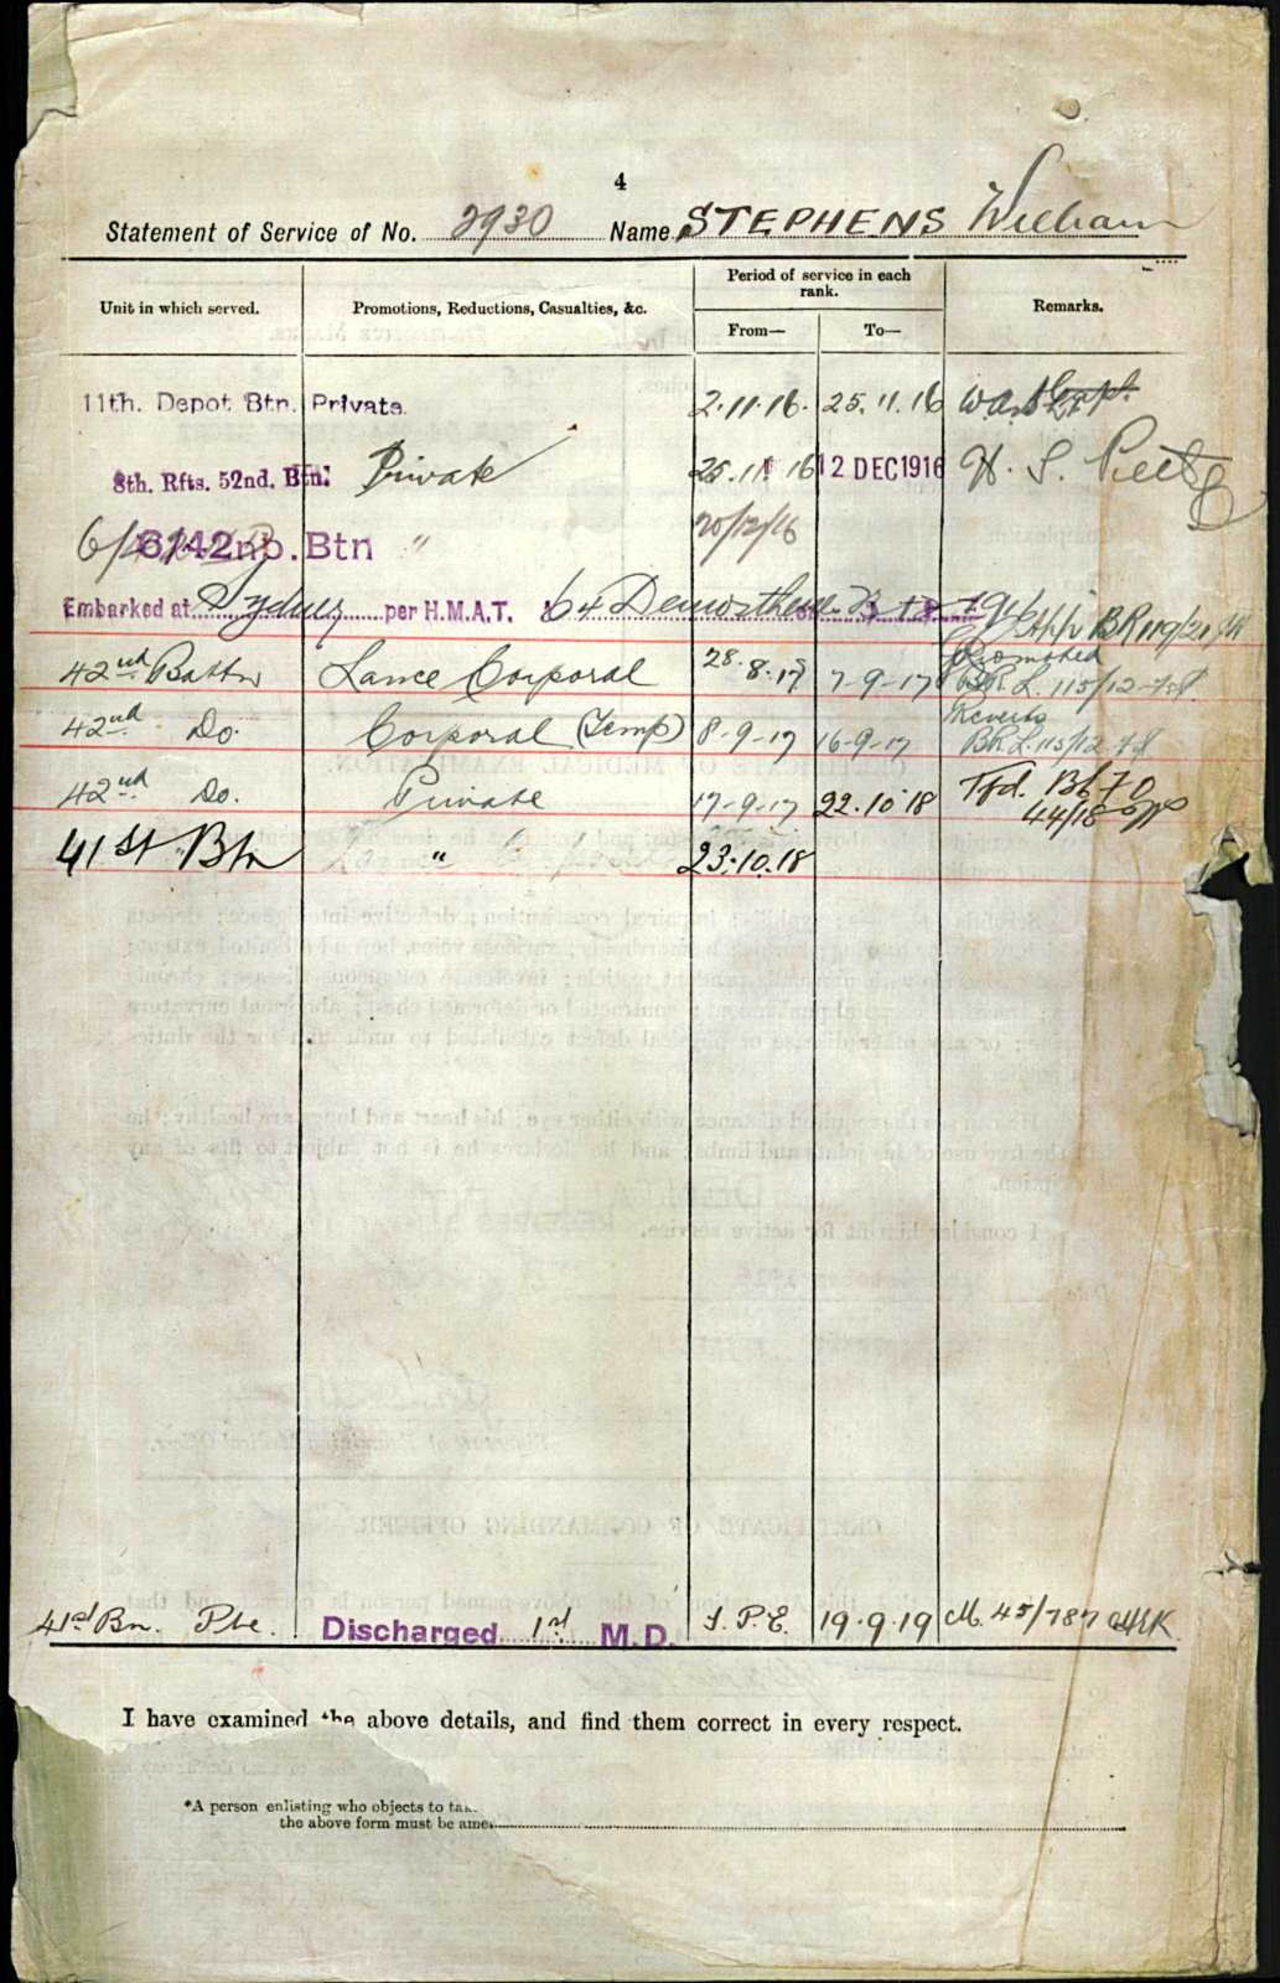 4
Statement of Service of No. 2930 Name STEPHENS William
Unit in which served. Promotions, Reductions, Casualties, &c. Period of service in each rank. From— To— Remarks.
11th. Depot Btn. Private. 2.11.16. 25.11.16
8th. Rfts. 52nd. Btn. Private 25.11.16 12 DEC 1916
6/42ND. Btn " 20/12/16
Embarked at Sydney per H.M.A.T.
App BR 119/21
42nd Battn Lance Corporal 28.8.17 7-9-17 Promoted BRL. 115/12
42nd Do. Corporal (Temp) 8-9-17 16-9-17 Reverts BRL. 115/12
42nd Do. Private 17-9-17 22.10.18 Tfd. 44/18
41st Btn " 23.10.18
41st Bn. Pte. Discharged 1st M.D. T.P.E. 19.9.19 M. 45/787
I have examined the above details, and find them correct in every respect.
*A person enlisting who objects to
the above form must be